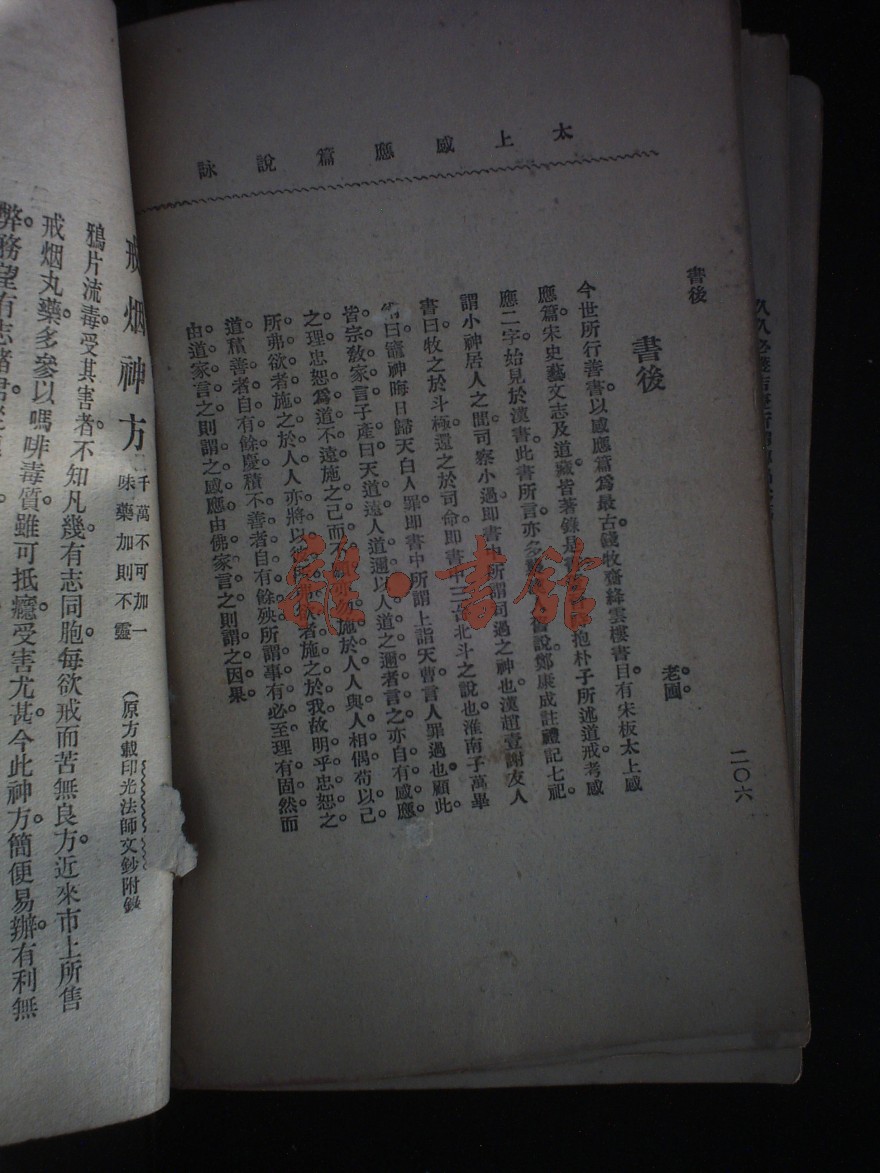 太上感應篇說詠
書後
二〇六
書後
老圃
今世所行善書以感應篇爲最古錢牧齋絳雲樓書目有宋板太上感
應篇宋史藝文志及道藏皆著錄是書 抱朴子所述道戒考感
應二字始見於漢書此書所言亦多 舊說鄭康成註禮記七祀
謂小神居人之間司察小過即書中所謂司過之神也漢趙壹謝友人
書曰牧之於斗極還之於司命即書中三台北斗之說也淮南子萬畢
術曰竈神晦日歸天白人罪即書中所謂上詣天曹言人罪過也顧此
皆宗敎家言子產曰天道遠人道邇以人道之邇者言之亦自有感應
之理忠恕爲道不遠施之己而不 施於人人與人相偶苟以己
所弗欲者施之於人人亦將以彼所 欲者施之於我故明乎忠恕之
道積善者自有餘慶積不善者自有餘殃所謂事有必至理有固然而
由道家言之則謂之感應由佛家言之則謂之因果
雜·書館
戒烟神方
千萬不可加一
味藥加則不靈
(原方載印光法師文鈔附錄
鴉片流毒受其害者不知凡幾有志同胞每欲戒而苦無良方近來市上所售
戒烟丸藥多參以嗎啡毒質雖可抵癮受害尤甚今此神方簡便易辦有利無
弊務望有志諸君